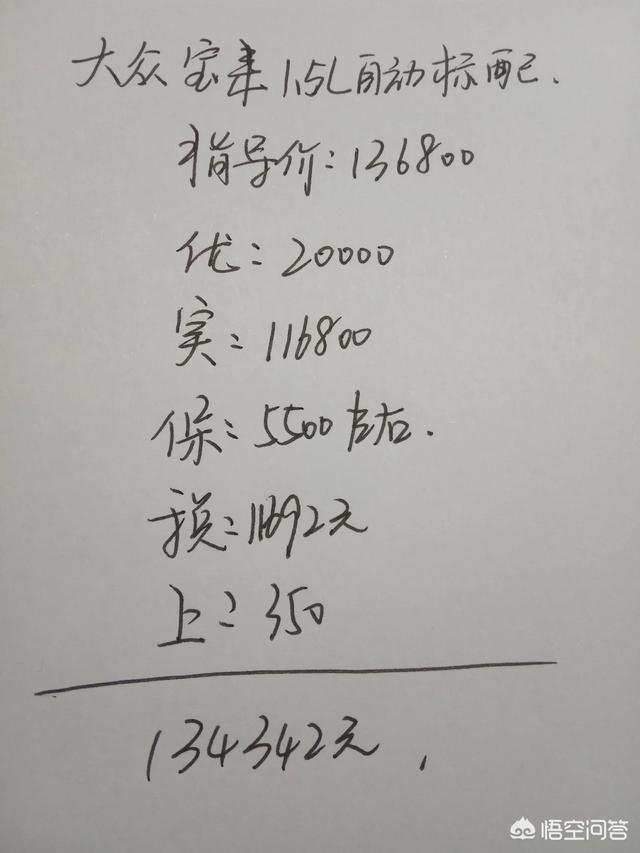 大众宝来1.5L自动标配.
指导价:136800
优:20000
实:116800
保:5500左右.
税:11692元
上:350
134342元.
悟空问答